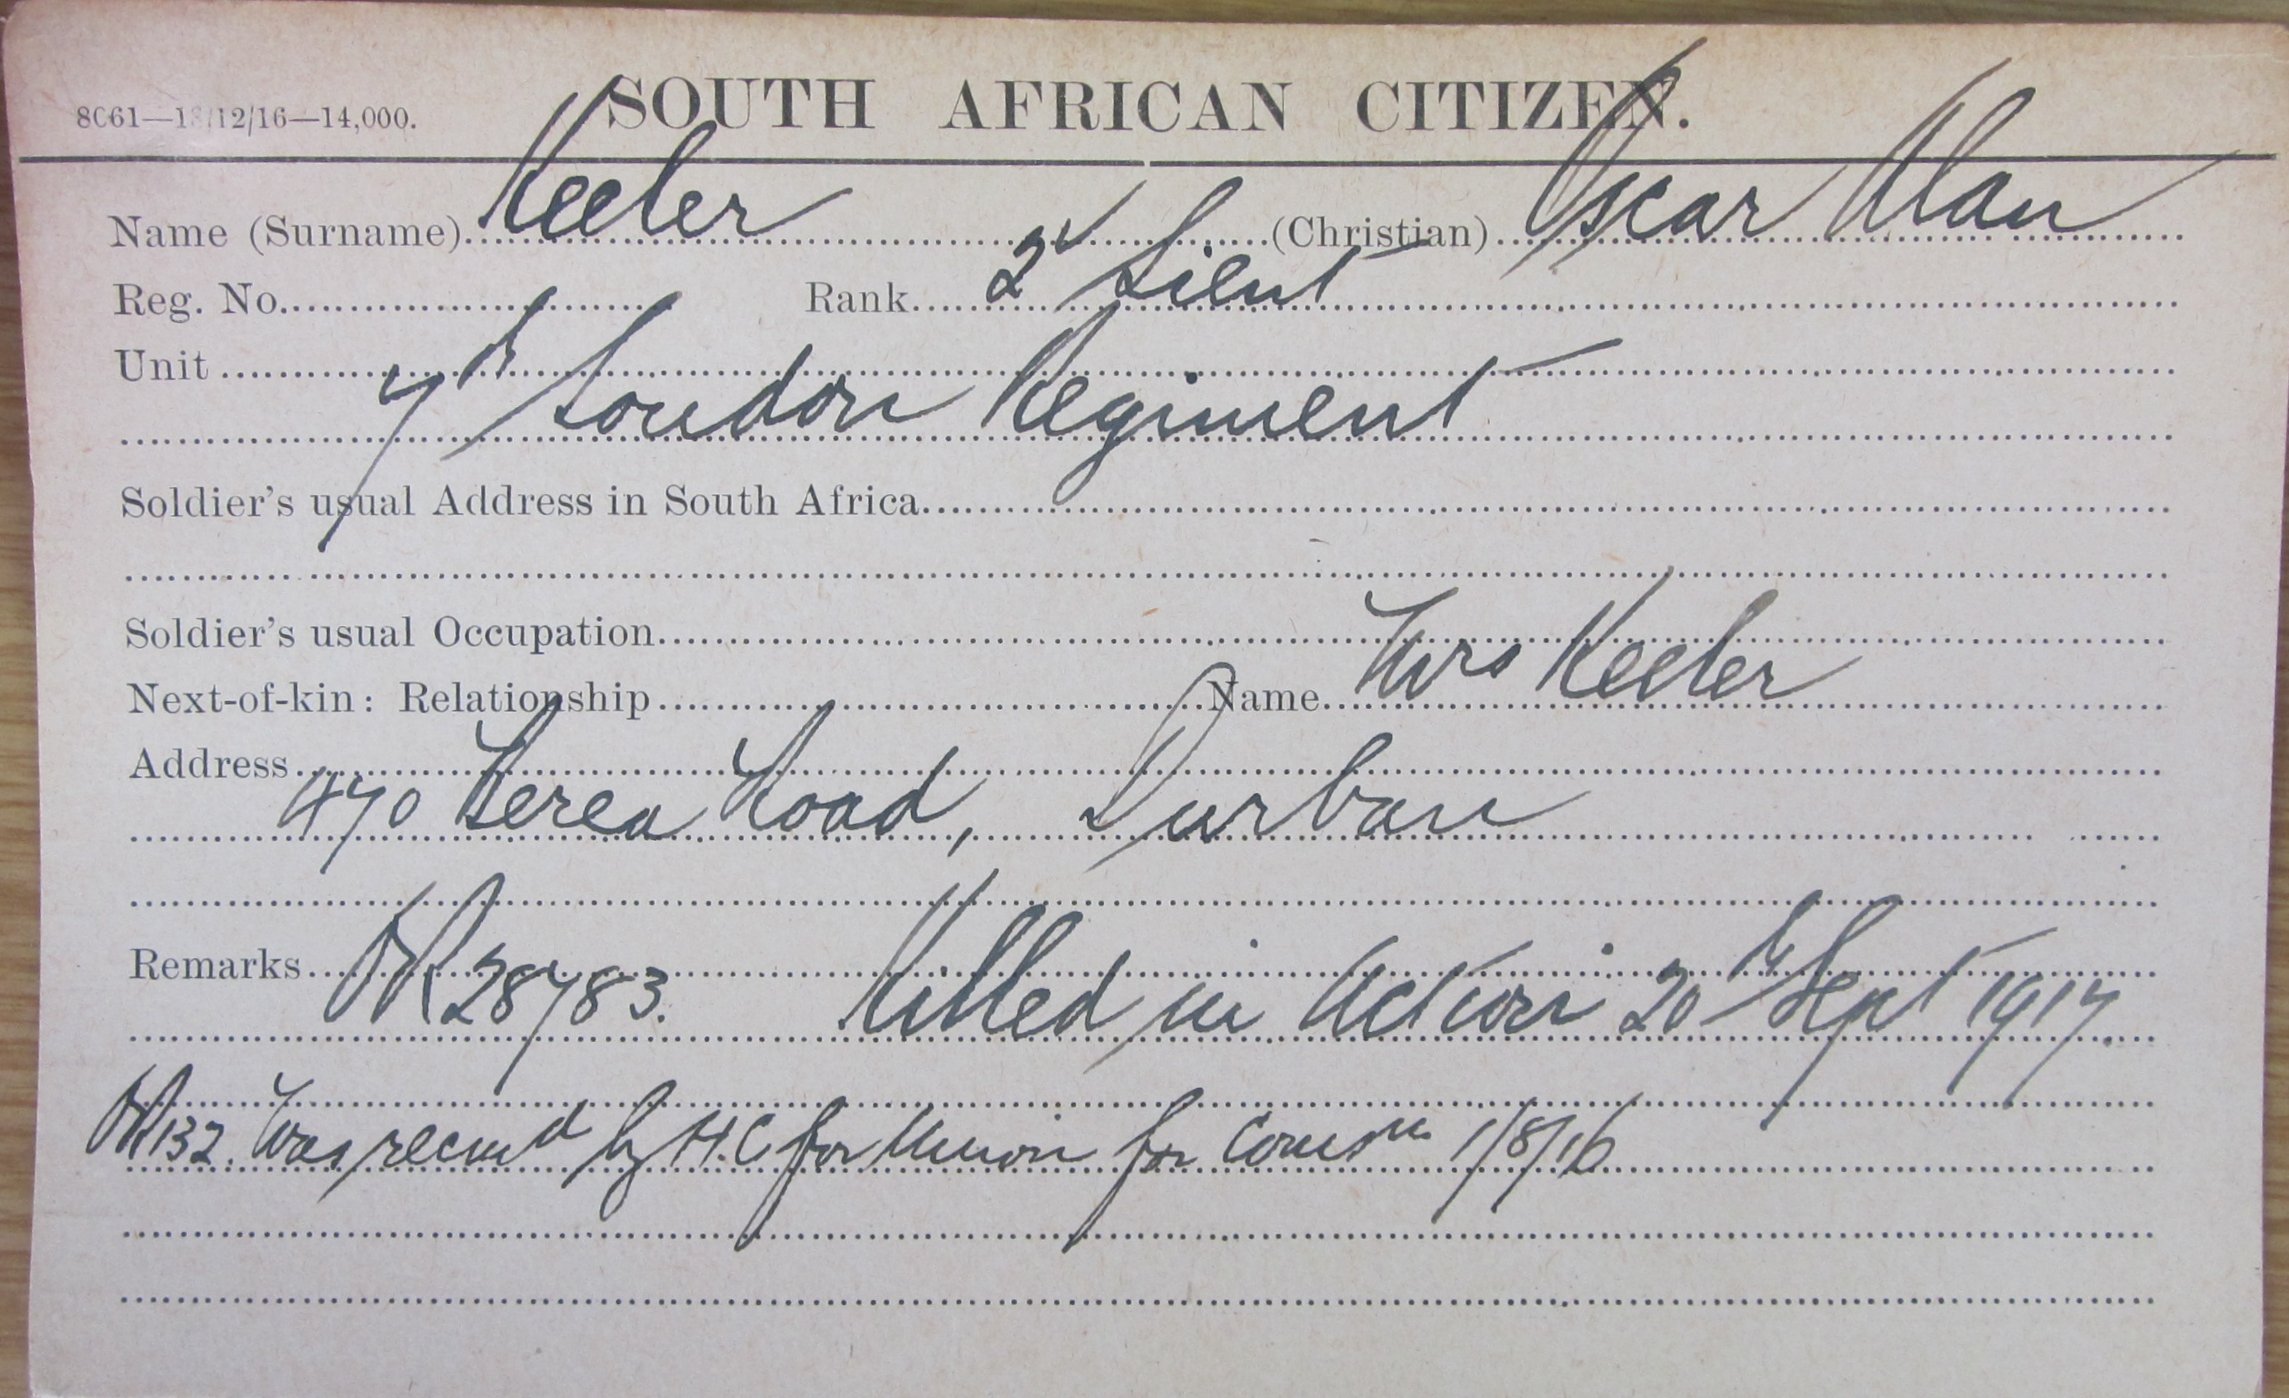 8C61—13/12/16—14,000. SOUTH AFRICAN CITIZEN.
Name (Surname) Keeler (Christian) Oscar Alan
Reg. No. Rank 2d Lieut
Unit
7th London Regiment
Soldier's usual Address in South Africa
Soldier's usual Occupation
Next-of-kin: Relationship Name Mrs Keeler
Address
470 Berea Road, Durban
Remarks
OR 28783. Killed in Action 20th Sept 1917.
OR 132. Was recmd by H.C. for Union for Comsn 1/8/16